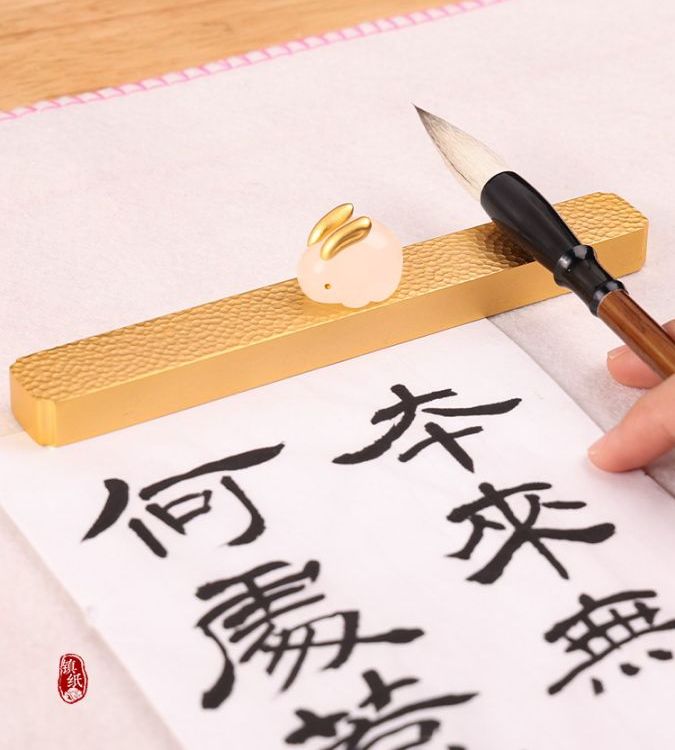 本來無
何處惹
镇纸